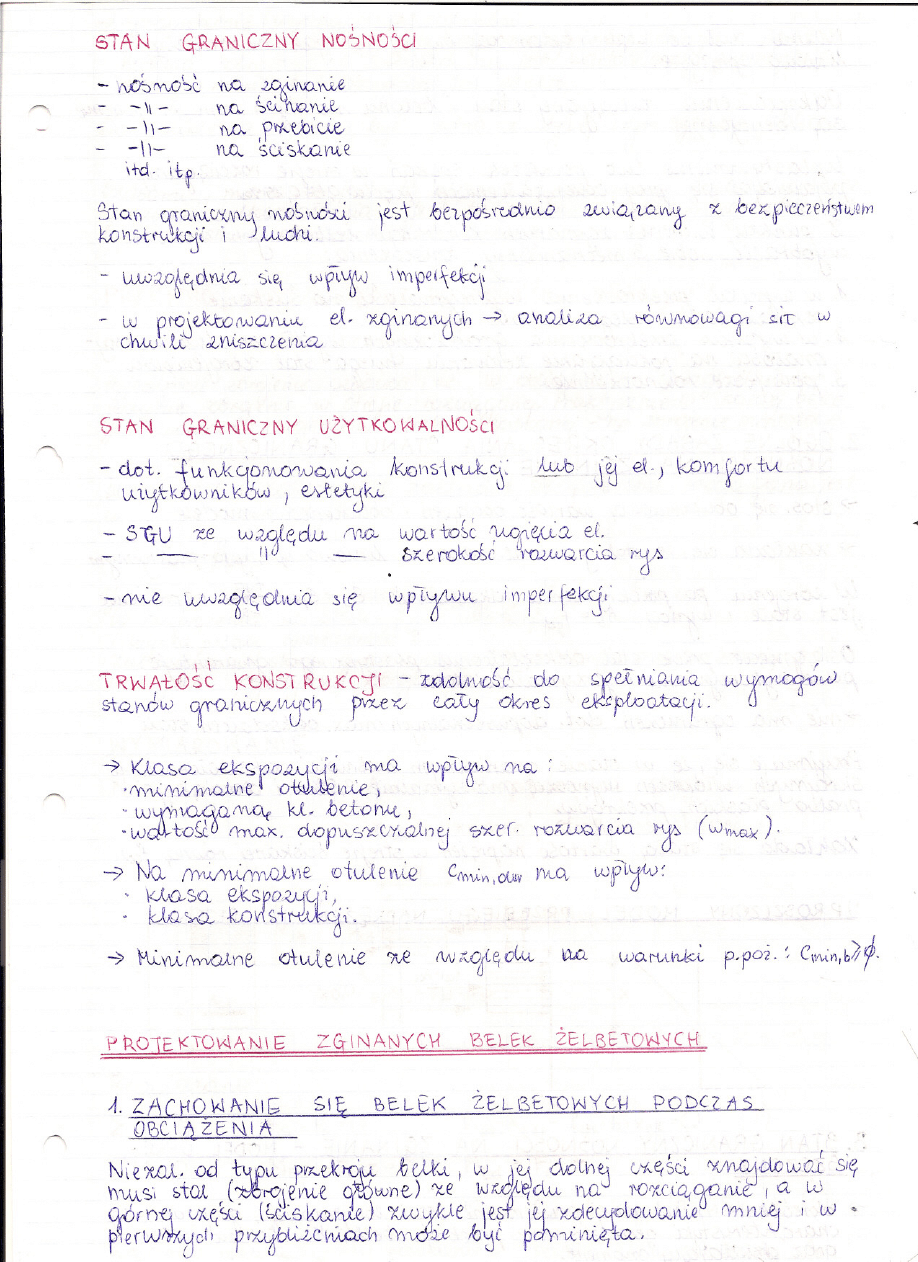 STAN GRANICZNY NOŚNOŚCI
- nośność na zginanie
- -||- na ścinanie
- -||- na przebicie
- -||- na ściskanie
itd. itp.
Stan graniczny nośności jest bezpośrednio związany z bezpieczeństwem
konstrukcji i ludzi.
- uwzględnia się wpływ imperfekcji
- w projektowaniu el. zginanych → analiza równowagi sił w
chwili zniszczenia
STAN GRANICZNY UŻYTKOWALNOŚCI
- dot. funkcjonowania konstrukcji lub jej el., komfortu
użytkowników, estetyki
- SGU ze względu na wartość ugięcia el.
- — || — szerokość rozwarcia rys
- nie uwzględnia się wpływu imperfekcji
TRWAŁOŚĆ KONSTRUKCJI - zdolność do spełniania wymogów
stanów granicznych przez cały okres eksploatacji.
→ Klasa ekspozycji ma wpływ na:
· minimalne otulenie,
· wymaganą kl. betonu,
· wartość max. dopuszczalnej szer. rozwarcia rys (wmax).
→ Na minimalne otulenie cmin,dur ma wpływ:
· klasa ekspozycji,
· klasa konstrukcji.
→ Minimalne otulenie ze względu na warunki p.poż.: cmin,b ≥ φ.
PROJEKTOWANIE ZGINANYCH BELEK ŻELBETOWYCH
1. ZACHOWANIE SIĘ BELEK ŻELBETOWYCH PODCZAS
OBCIĄŻENIA
Niezal. od typu przekroju belki, w jej dolnej części znajdować się
musi stal (zbrojenie główne) ze względu na rozciąganie, a w
górnej części (ściskanie) zwykle jest jej zdecydowanie mniej i w
pierwszych przybliżeniach może być pominięta.